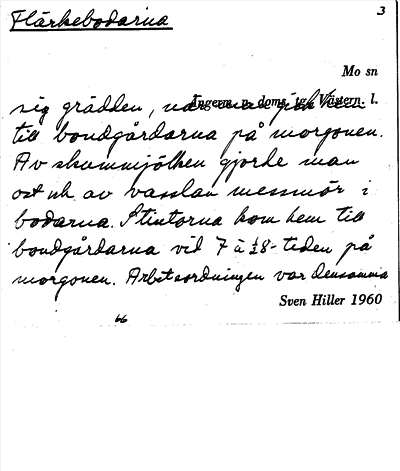 Flärkebodarna
3
Mo sn
Ångerm. n. doms. tg. Västern. l.
sig grädden, när man gick hem
till bondgårdarna på morgonen.
Av skummjölken gjorde man
ost och av vasslan messmör i
bodarna. Stintorna kom hem till
bondgårdarna vid 7 à ½8-tiden på
morgonen. Arbetsordningen var densamma
Sven Hiller 1960
66